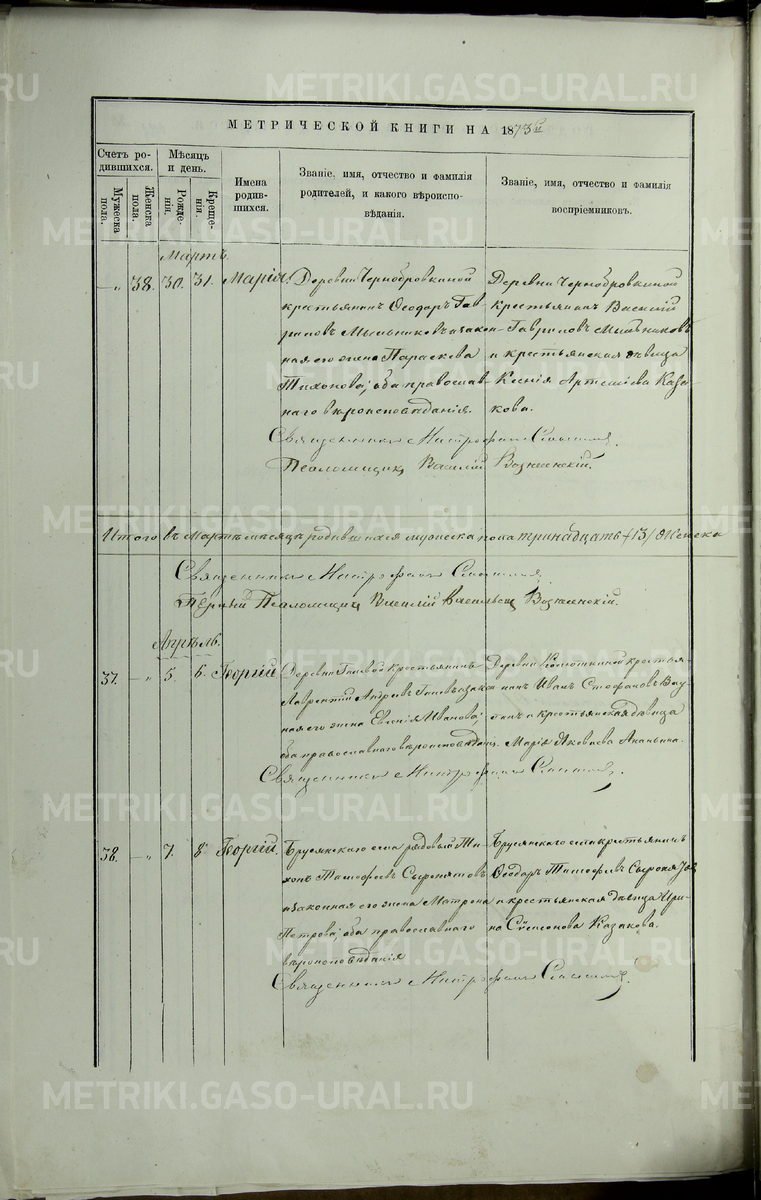 МЕТРИЧЕСКОЙ КНИГИ НА 1873й
Счетъ ро-
дившихся.
Мужеска
пола.
Женска
пола.
Мѣсяцъ
и день.
Рожде-
нія.
Креще-
нія.
Имена
родив-
шихся.
Званіе, имя, отчество и фамилія
родителей, и какого вѣроиспо-
вѣданія.
Званіе, имя, отчество и фамилія
воспріемниковъ.
Мартъ.
— „ 38. 30. 31. Марія.
Деревни Чернобровкиной
крестьянинъ Ѳеодоръ Гав-
риловъ Мыльниковъ и закон-
ная его жена Параскева
Тихонова; оба православ-
наго вѣроисповѣданія.
Деревни Чернобровкиной
крестьянинъ Василій
Гавриловъ Мыльниковъ
и крестьянская дѣвица
Ксенія Артеміева Каза-
кова.
Священникъ Митрофанъ
Псаломщикъ Василій Вознесенскій.
Итого въ Мартѣ мѣсяцѣ родившихся мужеска пола тринадцать (13) Женска
Священникъ Митрофанъ
Первый Псаломщикъ Василій Васильевъ Вознесенскій.
Апрѣль.
37. — „ 5. 6. Георгій.
Деревни крестьянинъ
Лаврентій и закон
ная его жена Евгенія Иванова;
оба православнаго вѣроисповѣдан.
Деревни крестья-
нинъ Иванъ Стефановъ
и крестьянская дѣвица
Марія Яковлева Ананьина.
Священникъ Митрофанъ
38. — „ 7. 8. Георгій.
Бруснянскаго села рядовой Ти-
хонъ Тимофеевъ Сыромятовъ
и законная его жена Матрона
Петрова; оба православнаго
вѣроисповѣданія
Бруснянскаго села крестьянинъ
Ѳеодоръ Тимофеевъ
и крестьянская дѣвица Ири-
на Симеонова Казакова.
Священникъ Митрофанъ
METRIKI.GASO-URAL.RU